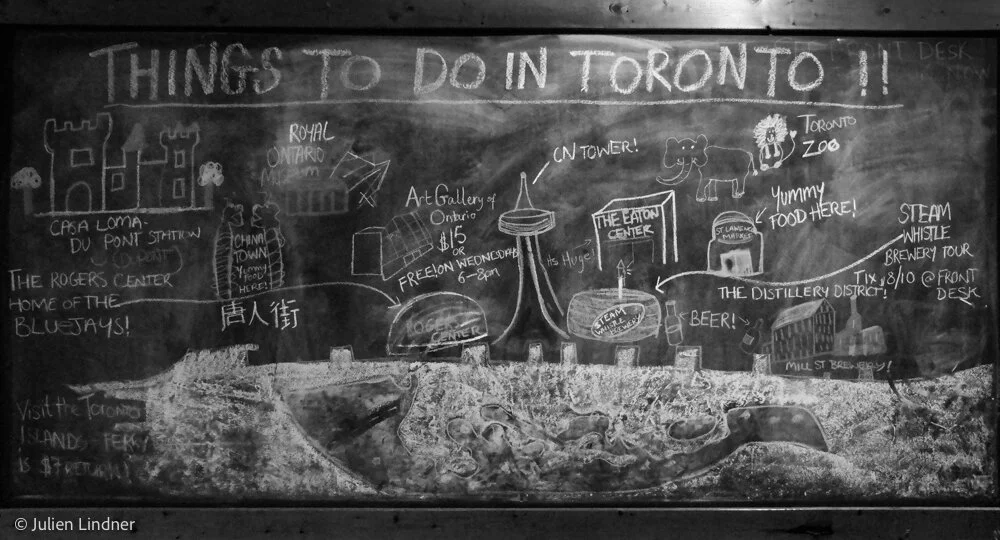 THINGS TO DO IN TORONTO !!
FRONT DESK
CASA LOMA-
DU PONT STATION
ROYAL
ONTARIO
MUSEUM
CHINA
TOWN
Yummy
FOOD
HERE!
唐人街
THE ROGERS CENTER
HOME OF THE
BLUEJAYS!
Art Gallery of
Ontario
$15
OR
FREE! ON WEDNESDAYS
6-8pm
ROGERS
CENTER
CN TOWER!
its Huge!
THE EATON
CENTER
TORONTO
ZOO
YUMMY
FOOD HERE!
ST LAWRENCE
MARKET
STEAM
WHISTLE
BREWERY TOUR
TIX, 8/10 @ FRONT
DESK
STEAM
WHISTLE
BREWERY
BEER!
THE DISTILLERY DISTRICT!
MILL ST BREWERY!
Visit the Toronto
ISLANDS- FERRY
is $7 return!
© Julien Lindner